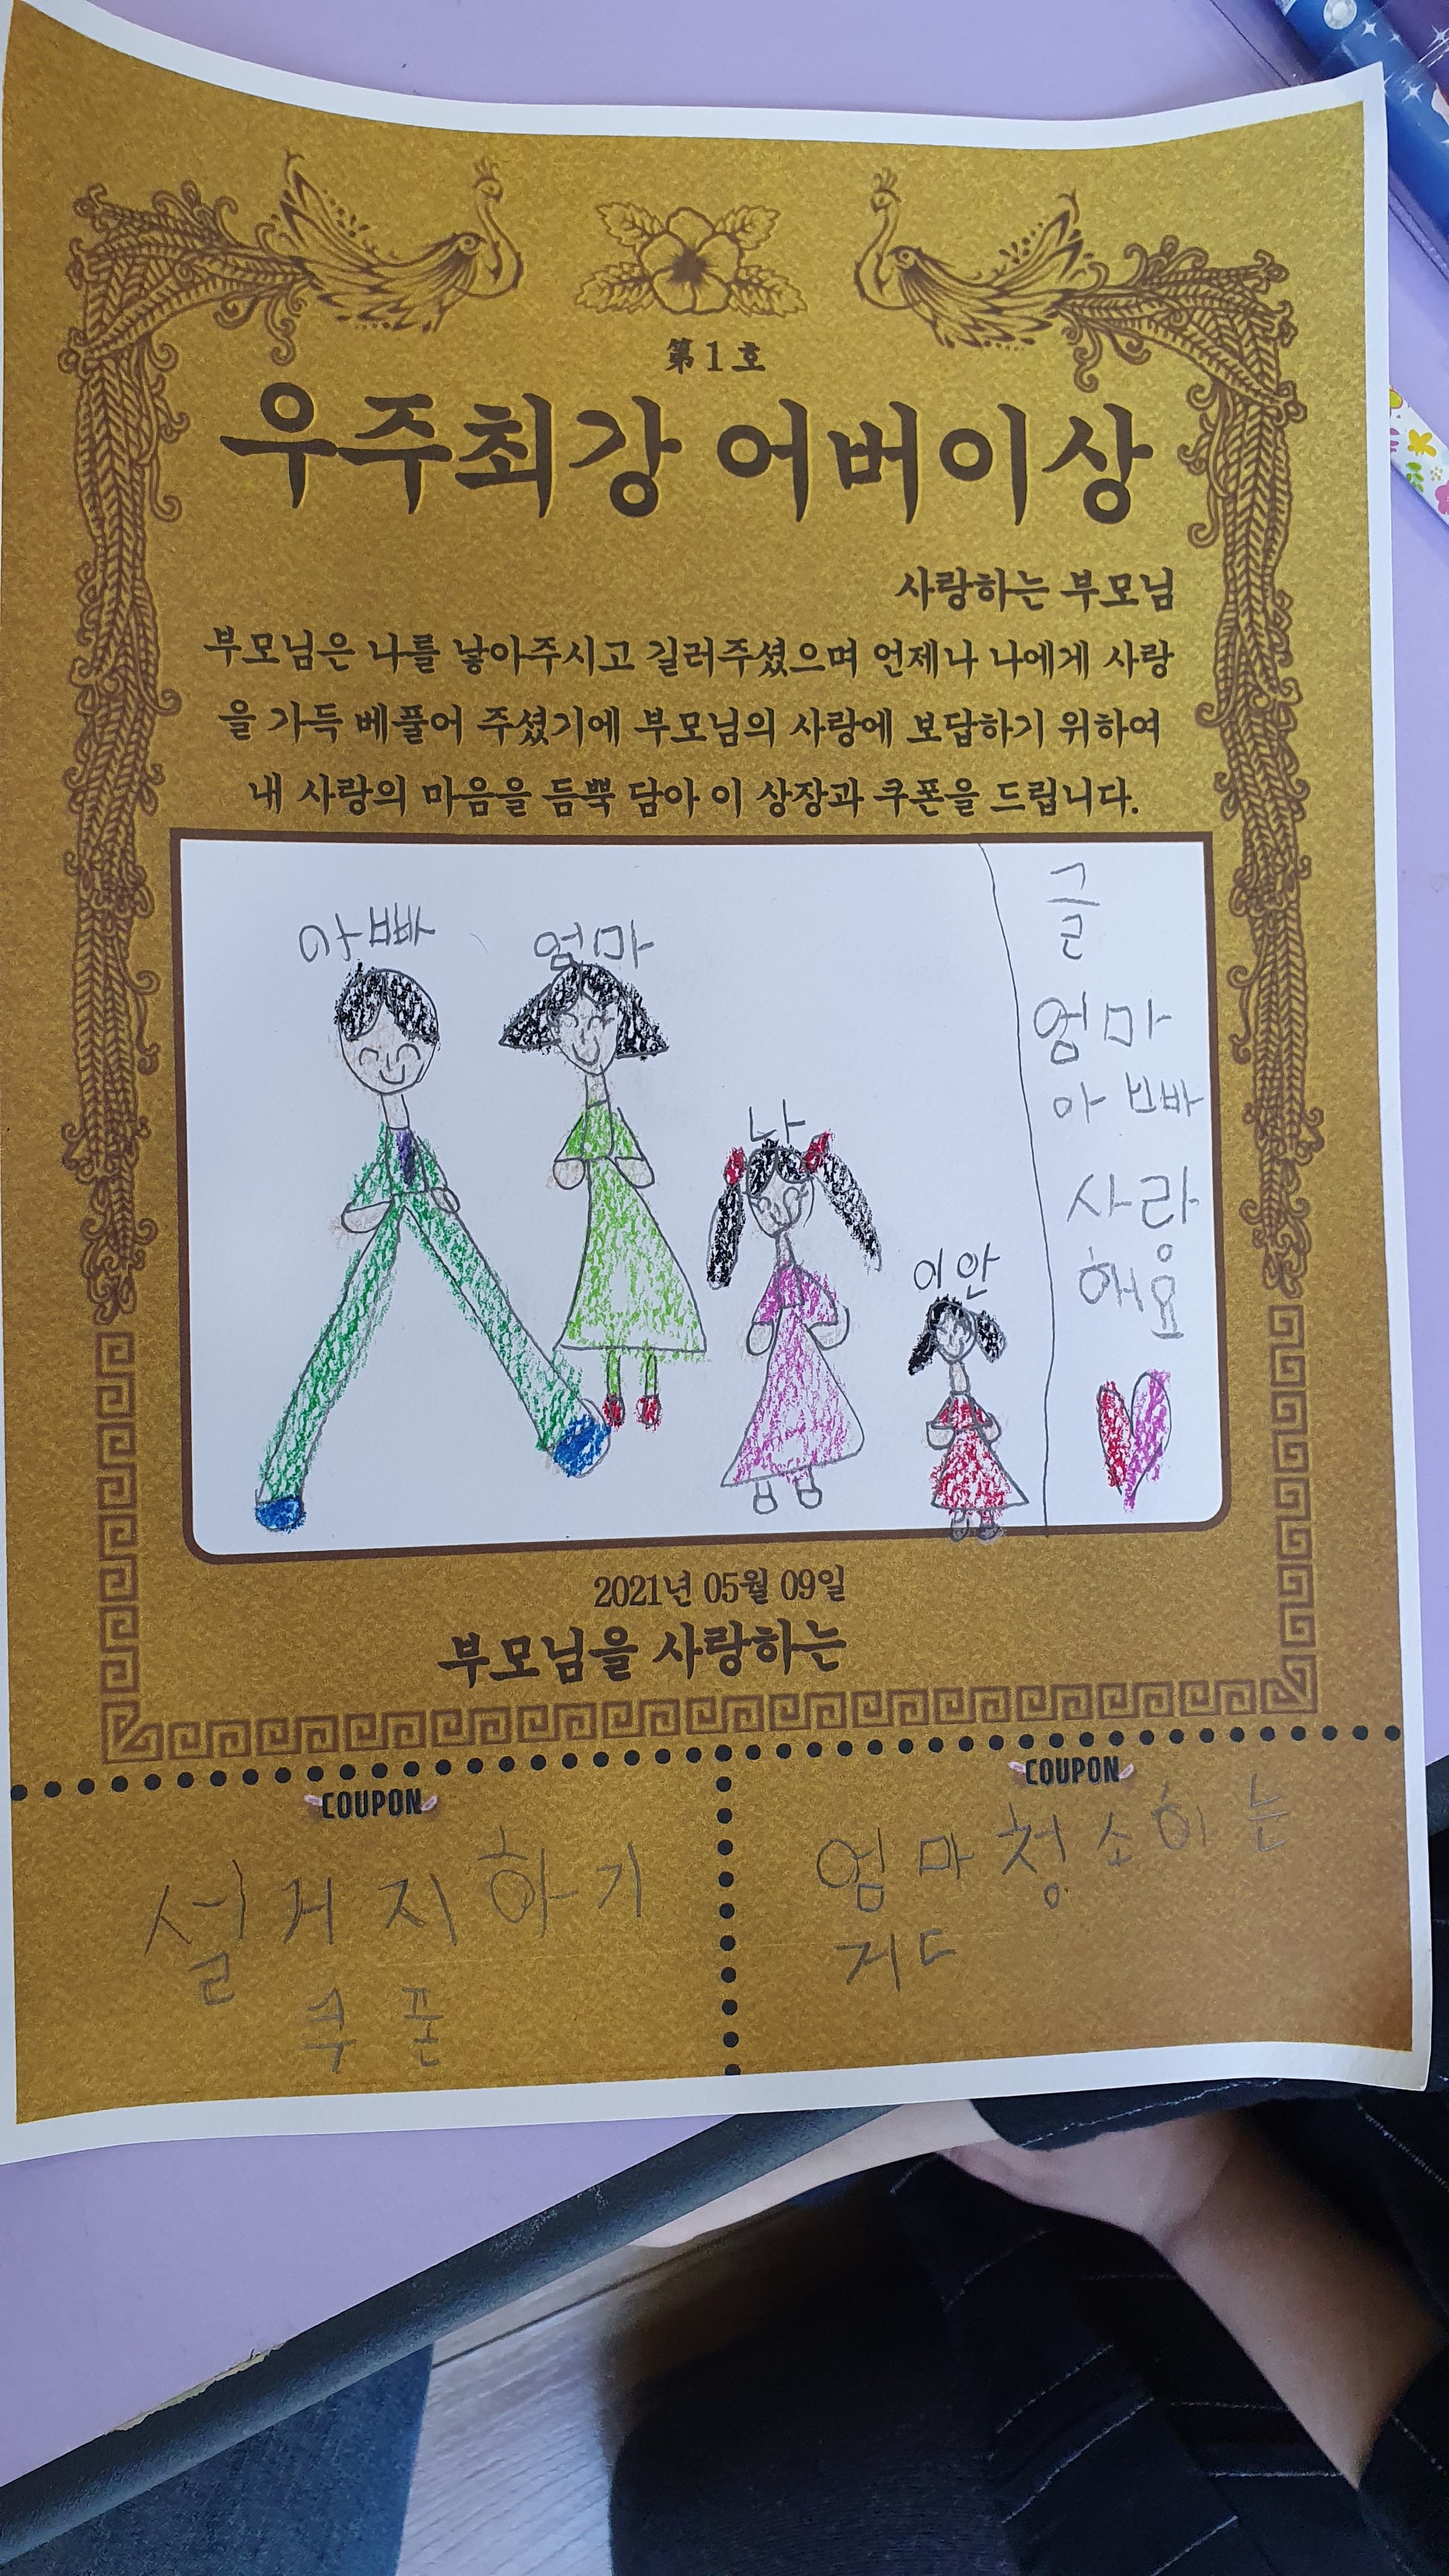 第1호
우주최강 어버이상
사랑하는 부모님
부모님은 나를 낳아주시고 길러주셨으며 언제나 나에게 사랑
을 가득 베풀어 주셨기에 부모님의 사랑에 보답하기 위하여
내 사랑의 마음을 듬뿍 담아 이 상장과 쿠폰을 드립니다.
아빠
엄마
나
이안
글
엄마
아빠
사랑
해요
2021년 05월 09일
부모님을 사랑하는
COUPON
설거지하기
쿠폰
COUPON
엄마 청소하는